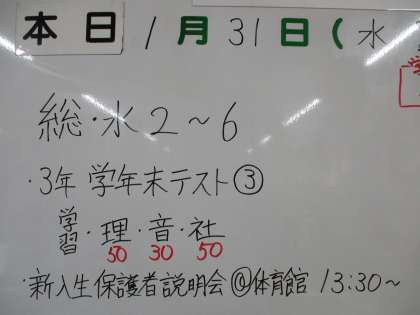 本日 1月31日(水
総・水2〜6
・3年 学年末テスト③
学習・理・音・社
50 30 50
・新入生保護者説明会@体育館 13:30〜